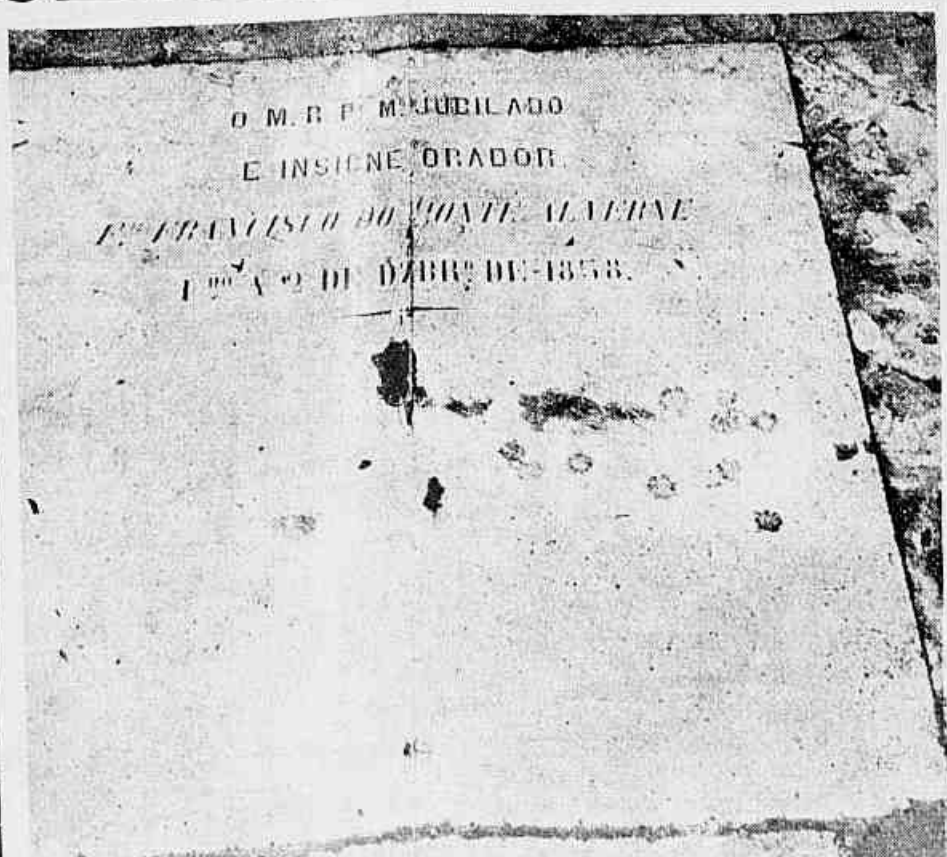 O M. R. P. M. JUBILADO
E INSIGNE ORADOR
Fr. FRANCISCO DO MONTE ALVERNE
F.º A 2 DE DZBRº DE 1858.